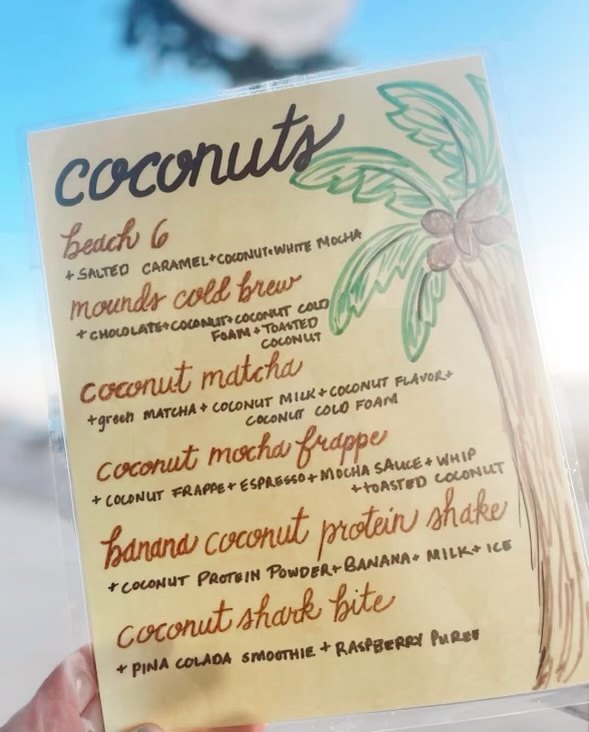 coconuts
beach 6
+ SALTED CARAMEL + COCONUT + WHITE MOCHA
mounds cold brew
+ CHOCOLATE + COCONUT + COCONUT COLD
FOAM + TOASTED
COCONUT
coconut matcha
+ green MATCHA + COCONUT MILK + COCONUT FLAVOR +
COCONUT COLD FOAM
coconut mocha frappe
+ COCONUT FRAPPE + ESPRESSO + MOCHA SAUCE + WHIP
+ TOASTED COCONUT
banana coconut protein shake
+ COCONUT PROTEIN POWDER + BANANA + MILK + ICE
coconut shark bite
+ PINA COLADA SMOOTHIE + RASPBERRY PUREE